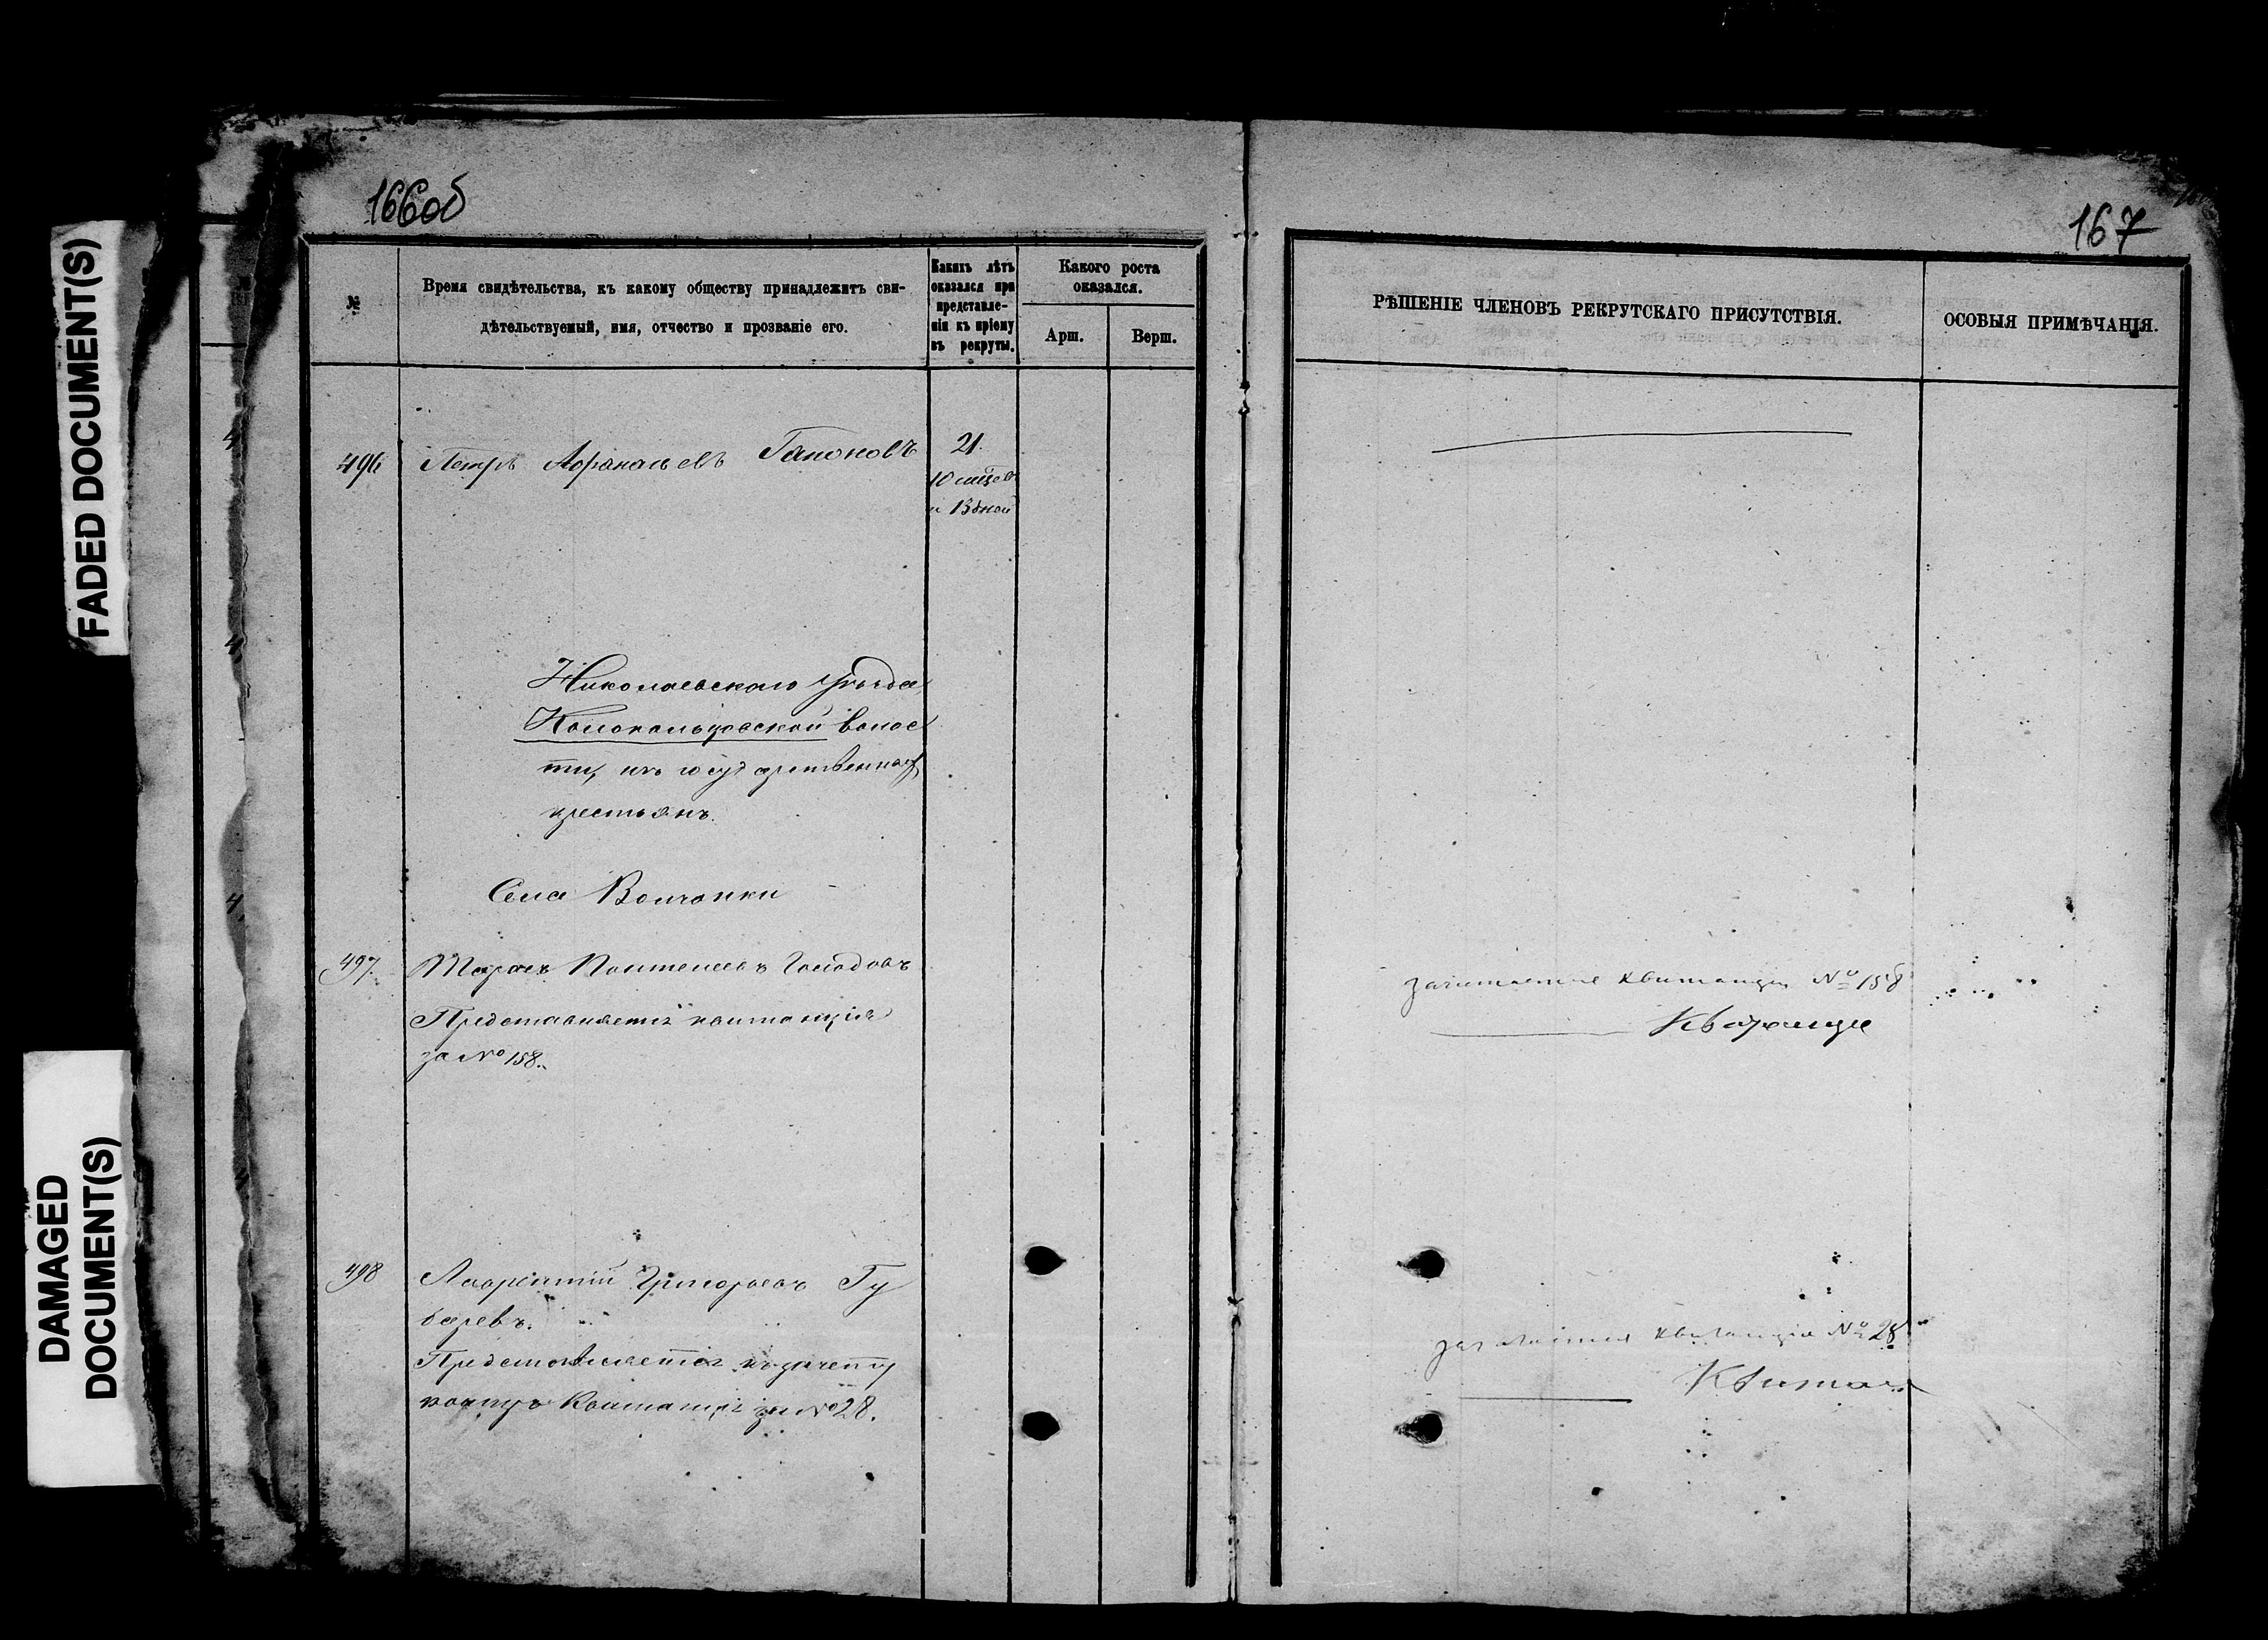 FADED DOCUMENT(S)
DAMAGED
DOCUMENT(S)
166об
№
Время свидѣтельства, къ какому обществу принадлежитъ сви-
дѣтельствуемый, имя, отчество и прозваніе его.
Какихъ лѣтъ
оказался при
представле-
ніи къ пріему
въ рекруты.
Какого роста
оказался.
Арш.
Верш.
496 Петръ Афанасьевъ Гапоновъ
21.
10 мѣсе
и 13 дней
Николаевскаго уѣзда
Колокольцовской волос
ти, изъ государственныхъ
крестьянъ.
Села Волчанки
497. Тарасъ Голодовъ
Представляетъ квитанцію
за № 158.
498 Лаврентій Григорьевъ Гу
баревъ.
Представляется къ зачету
квитанція за № 28.
167
РѢШЕНІЕ ЧЛЕНОВЪ РЕКРУТСКАГО ПРИСУТСТВІЯ.
ОСОБЫЯ ПРИМѢЧАНІЯ.
квитанція № 158
квитанція № 28